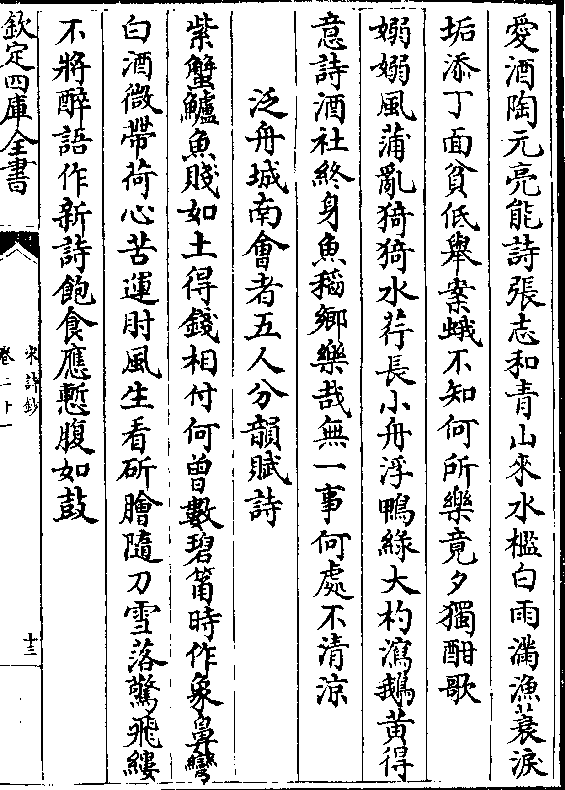 愛酒陶元亮能詩張志和青山來水檻白雨滿漁蓑淚
垢添丁面貧低舉案蛾不知何所樂竟夕獨酣歌
嫋嫋風蒲亂猗猗水荇長小舟浮鴨綠大杓瀉鵝黃得
意詩酒社終身魚稻鄉樂哉無一事何處不清涼
泛舟城南會者五人分韻賦詩
紫蟹鱸魚賤如土得錢相付何曾數碧筩時作象鼻彎
白酒微帶荷心苦運肘風生看斫膾隨刀雪落驚飛縷
不將醉語作新詩飽食應慙腹如鼓
欽定四庫全書
宋詩鈔
卷二十一
十三